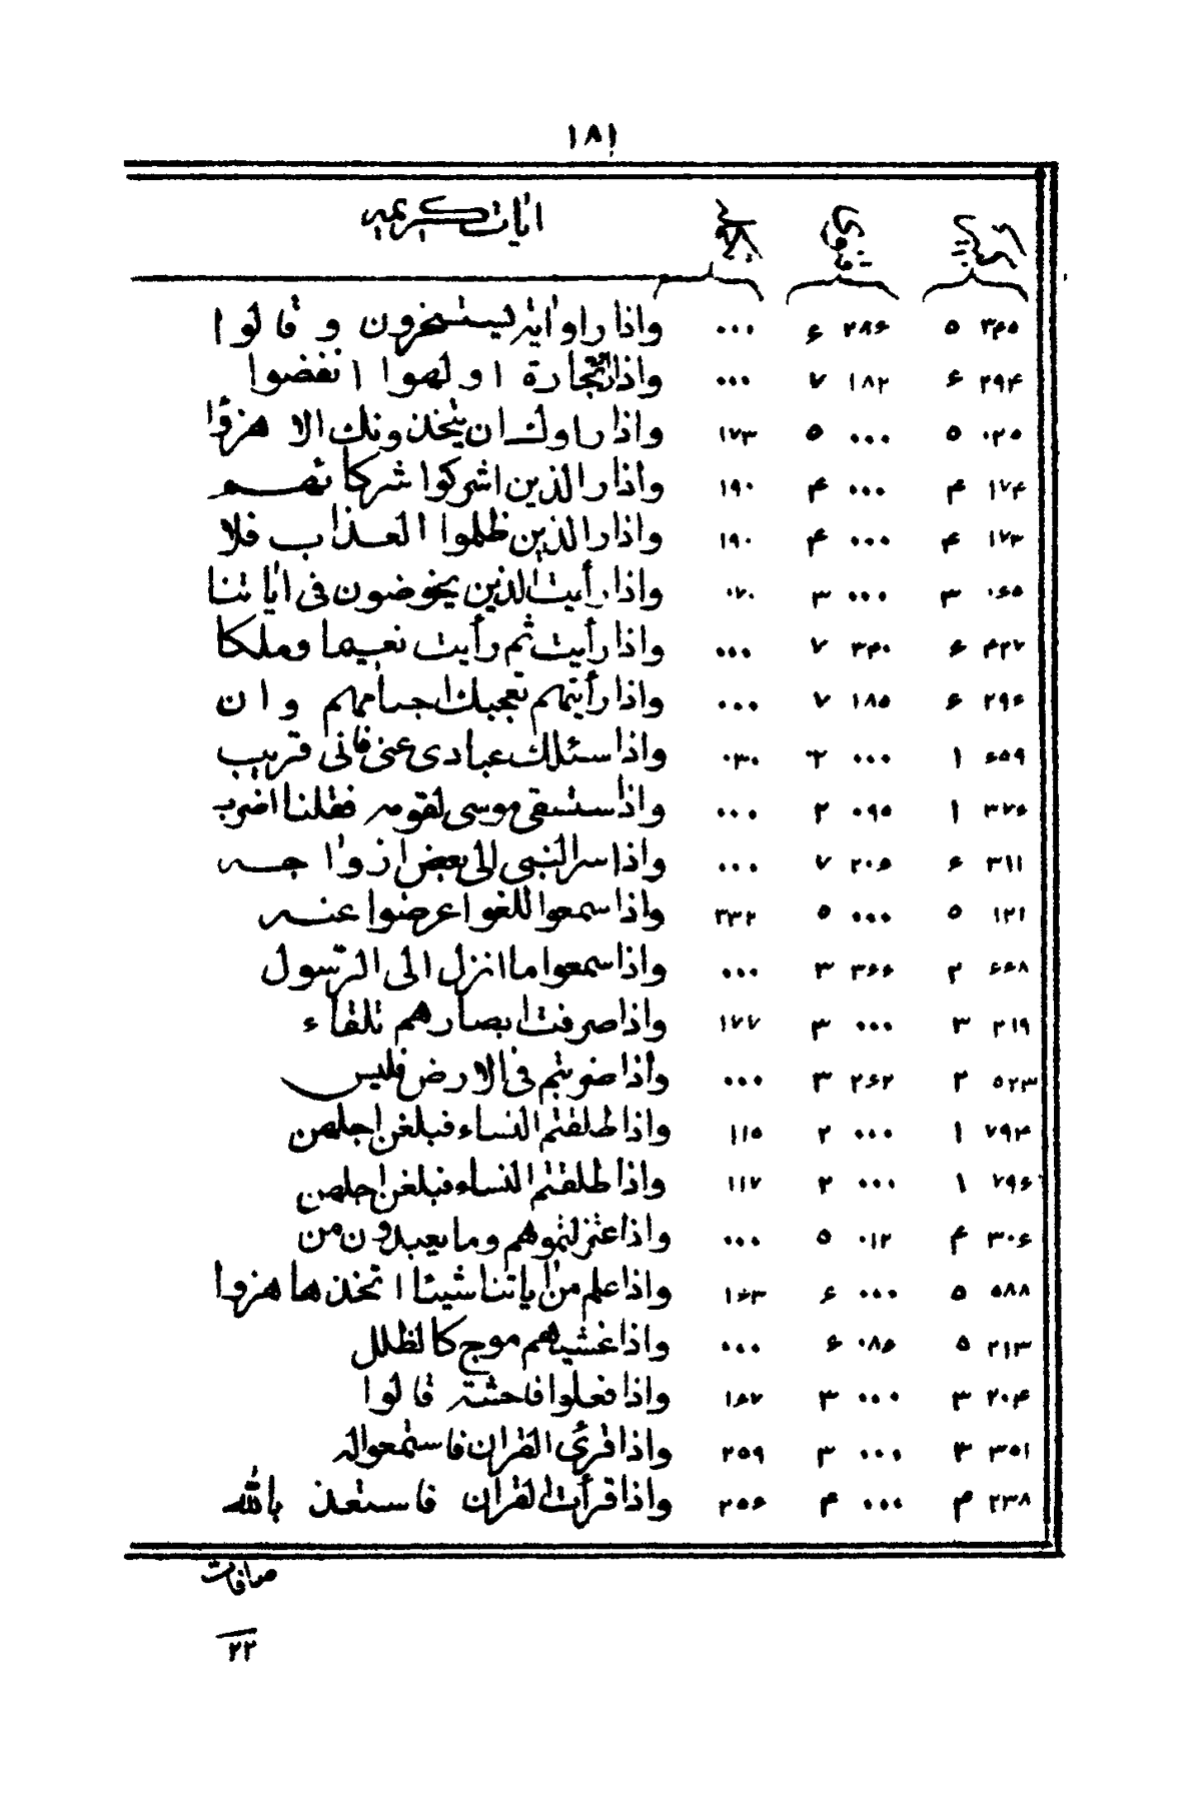 ١٨١
اٰيات كريمه
٣٤٥ ٥ ٢٨۶ ۶ ٠٠٠ واذا راوا اٰية ليستسخرون و قالوا
٢٩۴ ۶ ١٨٢ ٧ ٠٠٠ واذا راتجارة او لهوا ا نفضوا
٠٢٥ ٥ ٠٠٠ ٥ ١٧٣ واذا راوك ان يتخذونك الا هزؤا
١٧۴ ۴ ٠٠٠ ۴ ١٩٠ واذا را الذين اشركوا شركائهم
١٧٣ ۴ ٠٠٠ ۴ ١٩٠ واذا را الذين ظلموا العذاب فلا
٠۶٥ ٣ ٠٠٠ ٣ ٠٧٠ واذا رأيت الذين يخوضون فى اٰياتنا
۴٣٧ ۶ ٣۴٠ ٧ ٠٠٠ واذا رأيت ثم رأيت نعيما وملكا
٢٩۶ ۶ ١٨٥ ٧ ٠٠٠ واذا رأيتهم تعجبك اجسامهم و ان
۶٥٩ ١ ٠٠٠ ٢ ٠٣٠ واذا سئلك عبادى عنى فانى قريب
٣٧۶ ١ ٠٩٥ ٢ ٠٠٠ واذا ستسقى موسى لقومه فقلنا اضرب
٣١١ ۶ ٢٠۶ ٧ ٠٠٠ واذا سر النبى الى بعض ازوا جه
١٢١ ٥ ٠٠٠ ٥ ٣٣٢ واذا سمعوا اللغوا عرضوا عنه
۶۶٨ ٢ ٣۶۶ ٣ ٠٠٠ واذا سمعوا ما انزل الى الرسول
٢١٩ ٣ ٠٠٠ ٣ ١٧٧ واذا صرفت ابصارهم تلقاء
٥٢٣ ٢ ٢۶٢ ٣ ٠٠٠ وأذا ضربتم فى الارض فليس
٧٩۴ ١ ٠٠٠ ٢ ١١٥ واذا طلقتم النساء فبلغن اجلهن
٧٩۶ ١ ٠٠٠ ٢ ١١٧ واذا طلقتم النساء فبلغن اجلهن
٣٠۶ ۴ ٠١٢ ٥ ٠٠٠ واذا عتزلتموهم وما يعبدون من
٥٨٨ ٥ ٠٠٠ ۶ ١۶٣ واذا علم من اٰياتنا شيئا ا تخذها هزوا
٢١٣ ٥ ٠٨۶ ۶ ٠٠٠ واذا غشيهم موج كالظلل
٢٠۴ ٣ ٠٠٠ ٣ ١۶٧ واذا فعلوا فاحشة قالوا
٣٥١ ٣ ٠٠٠ ٣ ٢٥٩ واذا قرئ القران فاستمعوا له
٢٣٨ ۴ ٠٠٠ ۴ ٢٥۶ واذا قرأت القران فاستعذ بالله
صافات
٢٢